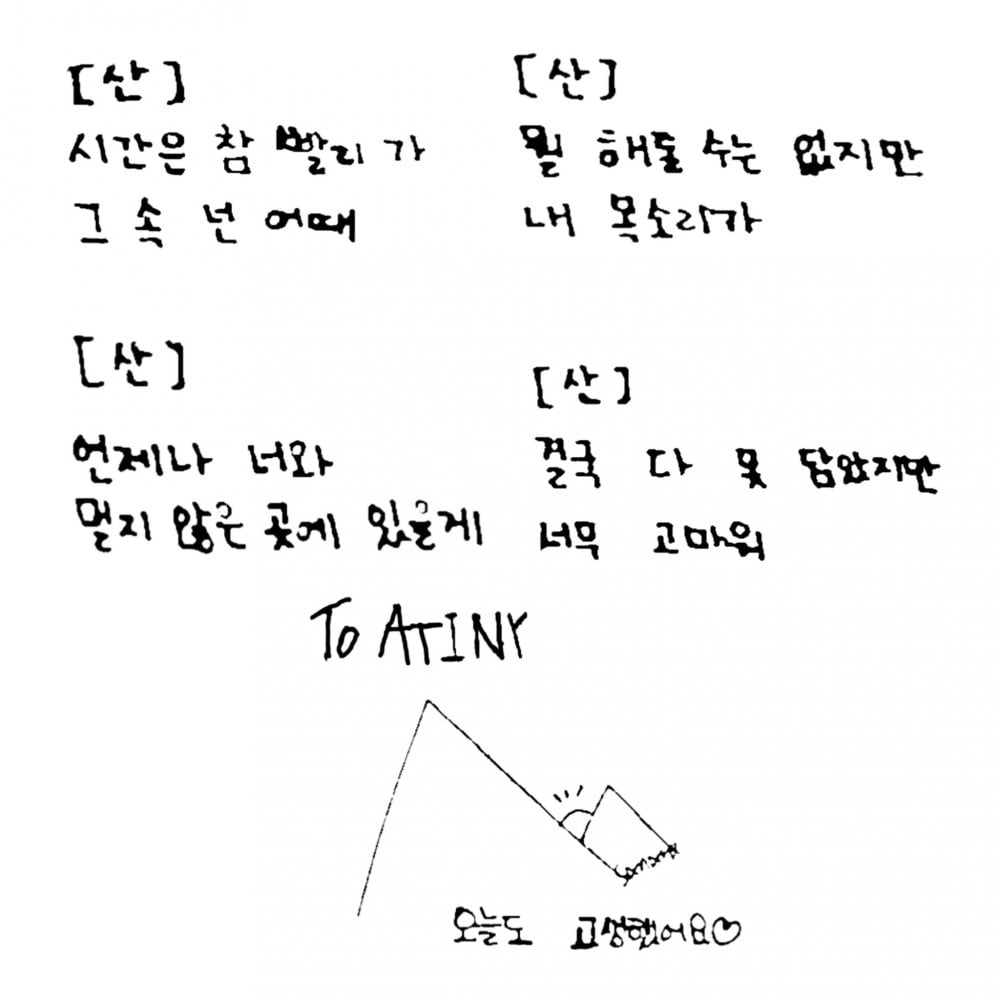 [산]
시간은 참 빨리 가
그 속 넌 어때
[산]
뭘 해줄 수는 없지만
내 목소리가
[산]
언제나 너와
멀지 않은 곳에 있을게
[산]
결국 다 못 담았지만
너무 고마워
To ATINY
오늘도 고생했어요♡